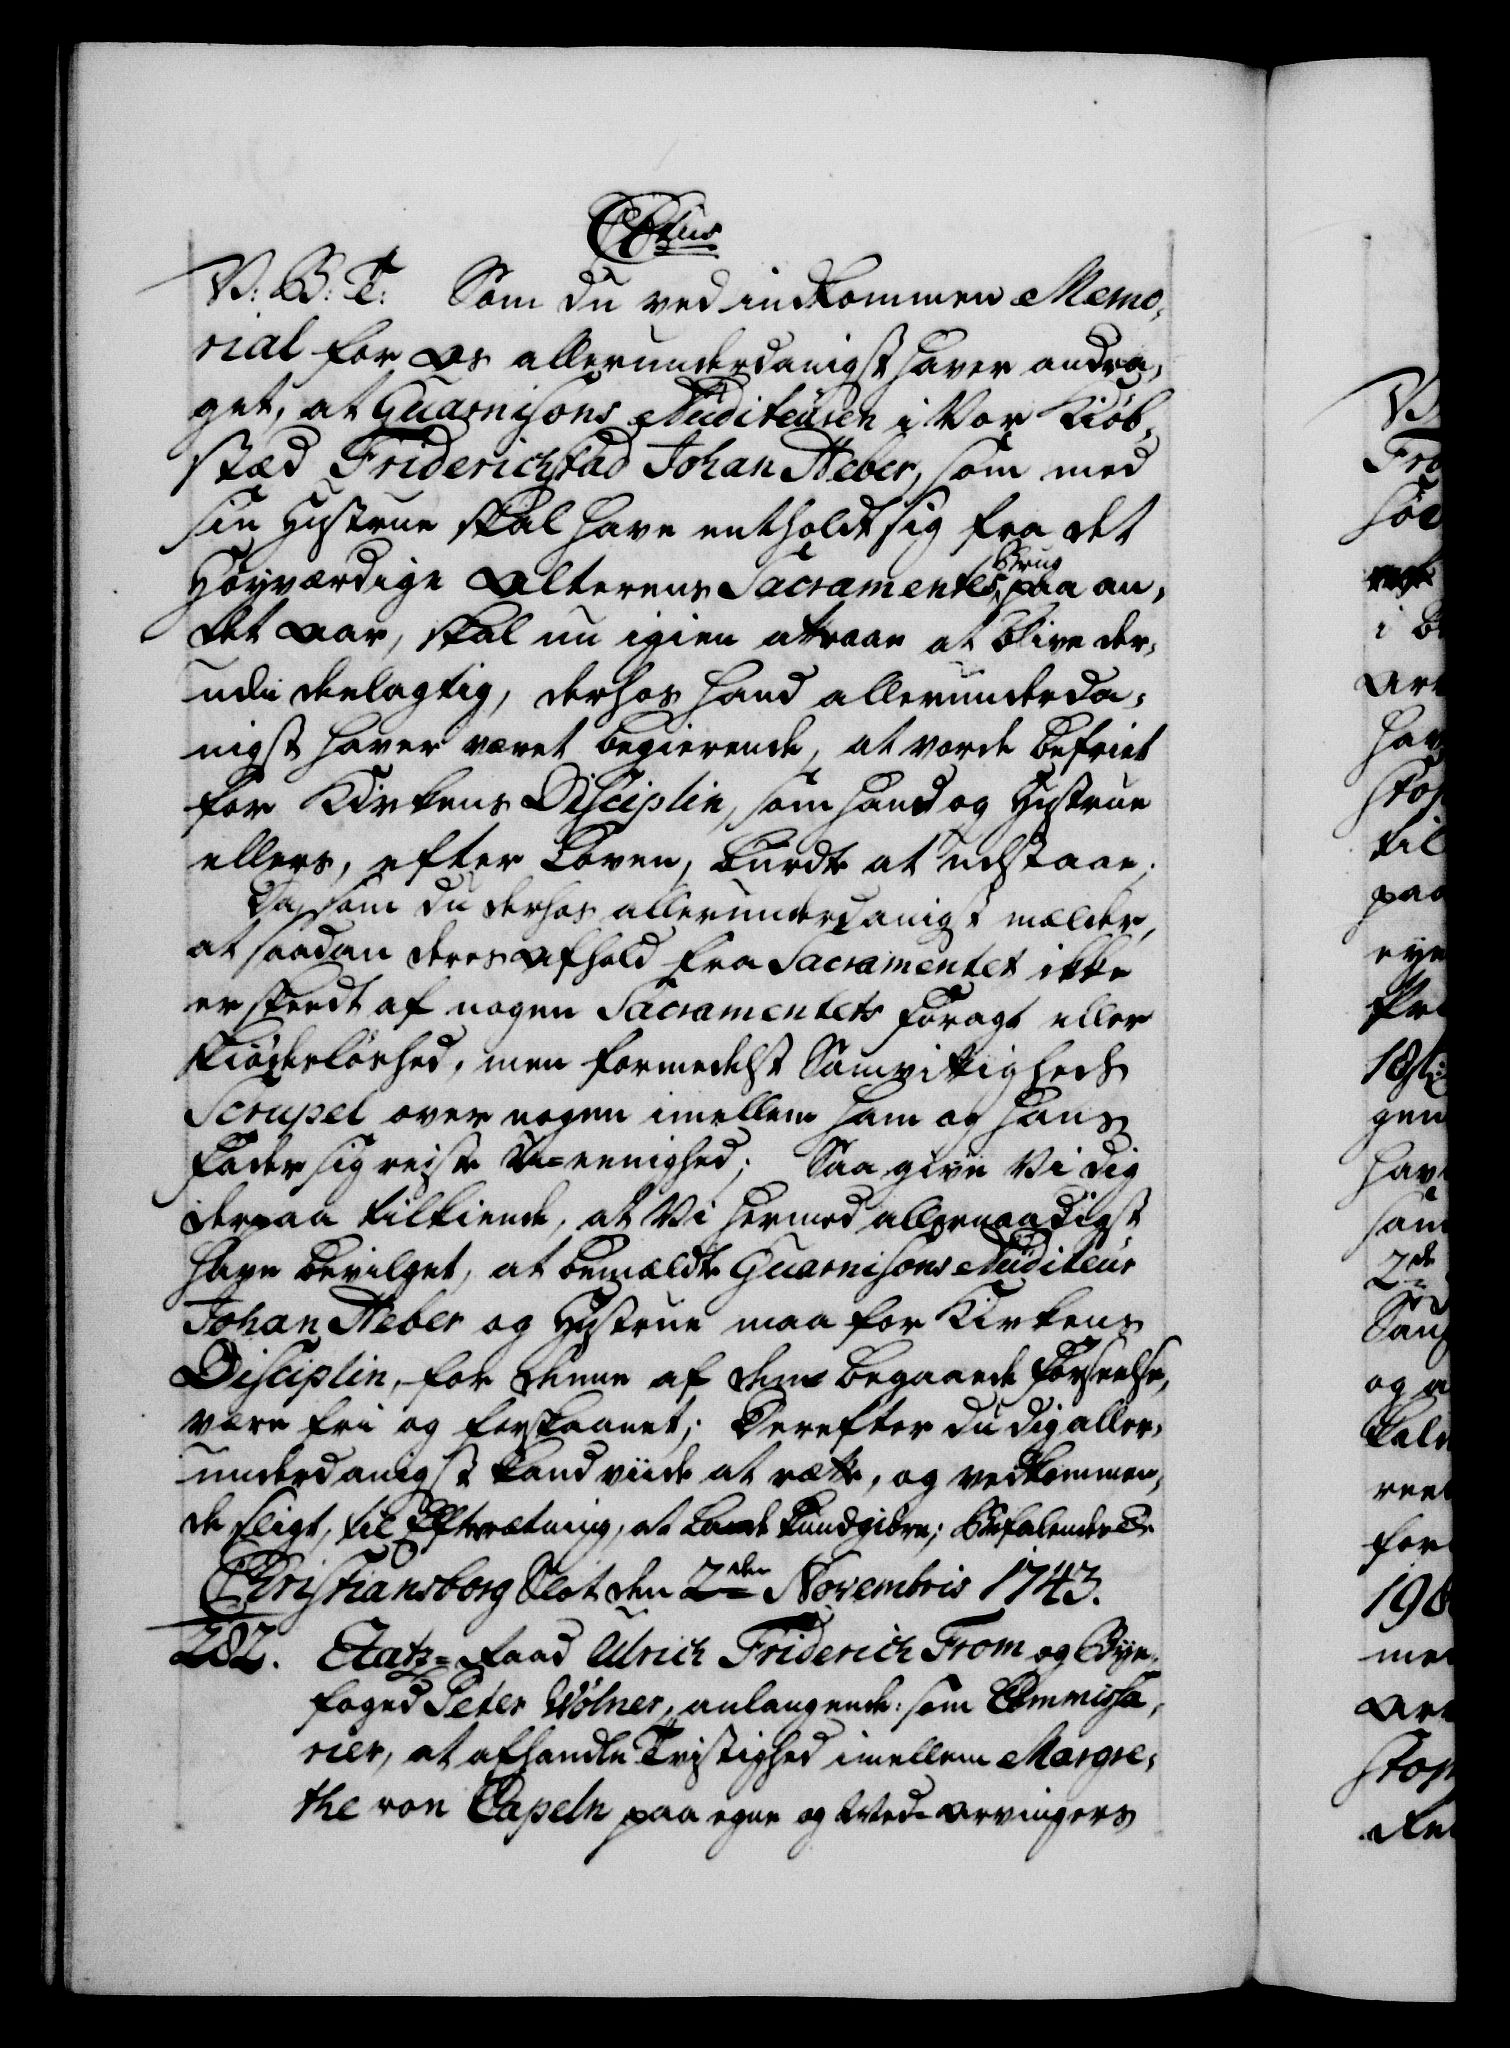 C6tus
V: G: T: Som du ved indkommen Memo,
rial for Os allerunderdanigst haver andra,
get, at Guarnisons Auditeuren i Vor Kiøb,
stæd Friderichstad Johan Neber, som med
sin Hustrue skal have entholdt sig fra det
Høyværdige Alterens Sacramentes Brug paa an,
det Aar, skal nu igien attraae at blive der,
udi deelagtig, derhos hand allerunderda,
nigst haver været begierende, at vorde befriet
for Kirkens Disciplin, som hand og Hustrue
ellers, efter Loven, burde at udstaae.
Da, som du derhos allerunderdanigst melder,
at saadan deres Afhold fra Sacramentet ikke
er skeedt af nogen Sacramentets Foragt eller
Skiødesløshed, men formedelst Samvittigheds
Scrupel over nogen imellem ham og hans
Fader sig reiste U-eenighed; Saa give Vi dig
derpaa tilkiende, at Vi hermed allernaadigst
have bevilget, at bemældte Guarnisons Auditeur
Johan Neber og Hustrue maa for Kirkens
Disciplin, for denne af dem begaaede Forseelse,
være fri og forskaanet; Derefter du dig aller,
underdanigst kand viide at rette, og vedkommen,
de sligt, til Efterretning, at lade kundgiøre; Befalendes
Christiansborg Slot den 2den Novembris 1743.
282. Etats-Raad Ulrich Friderich From og Bye,
foged Peter Wølner, anlangende: som Commissa,
rier, at afhandle Tvistighed imellem Margre,
the von Capeln paa egne og Med-Arvingers